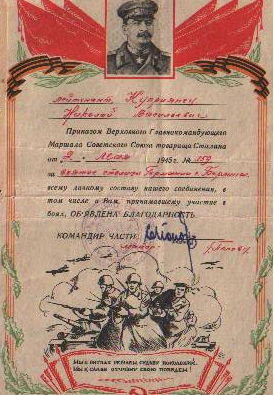 лейтенант Куприянец
Николай Васильевич
Приказом Верховного Главнокомандующего
Маршала Советского Союза товарища Сталина
от 2. мая 1945 г. № 359
за взятие столицы Германии г. Берлина,
всему личному составу нашего соединения, в
том числе и Вам, принимавшему участие в
боях, ОБЪЯВЛЕНА БЛАГОДАРНОСТЬ.
КОМАНДИР ЧАСТИ:
майор
МЫ В БИТВАХ РЕШАЕМ СУДЬБУ ПОКОЛЕНИЙ,
МЫ К СЛАВЕ ОТЧИЗНУ СВОЮ ПОВЕДЕМ!